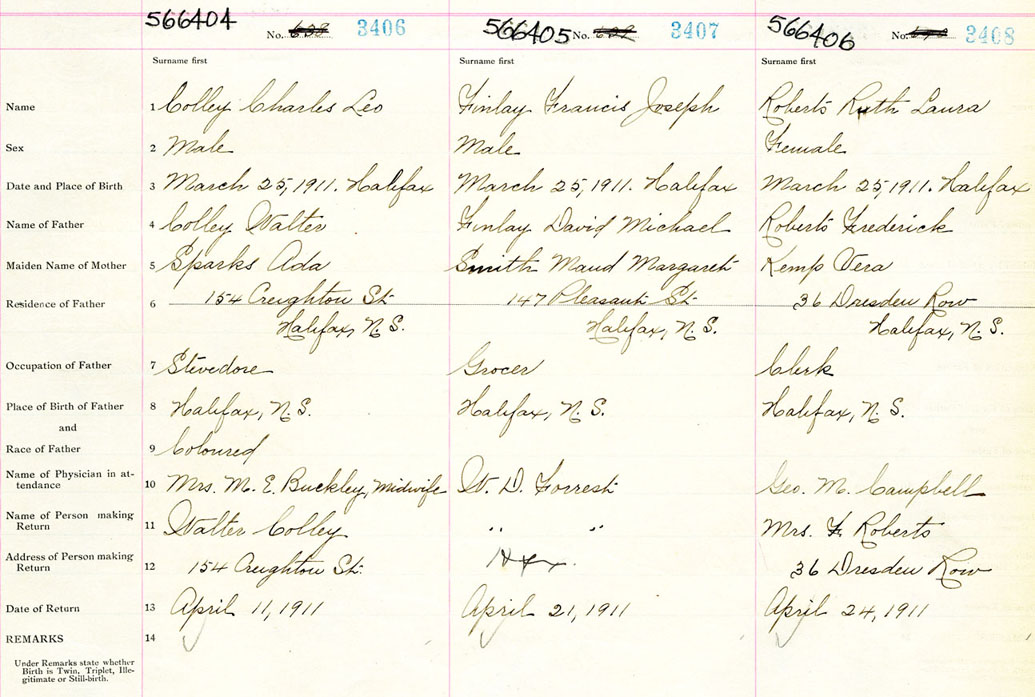 566404 No. 3406 566405 No. 3407 566406 No. 3408
Surname first Surname first Surname first
Name 1 Colley Charles Leo Finlay Francis Joseph Roberts Ruth Laura
Sex 2 Male Male Female
Date and Place of Birth 3 March 25, 1911. Halifax March 25, 1911. Halifax March 25, 1911. Halifax
Name of Father 4 Colley Walter Finlay David Michael Roberts Frederick
Maiden Name of Mother 5 Sparks Ada Smith Maud Margaret Kemp Vera
Residence of Father 6 154 Creighton St. 147 Pleasant St. 36 Dresden Row
Halifax, N.S. Halifax, N.S. Halifax, N.S.
Occupation of Father 7 Stevedore Grocer Clerk
Place of Birth of Father 8 Halifax, N.S. Halifax, N.S. Halifax, N.S.
and
Race of Father 9 Coloured
Name of Physician in at-
tendance 10 Mrs. M. E. Buckley, Midwife W. D. Forrest Geo. M. Campbell
Name of Person making
Return 11 Walter Colley " " Mrs. F. Roberts
Address of Person making
Return 12 154 Creighton St. Hfx. 36 Dresden Row
Date of Return 13 April 11, 1911 April 21, 1911 April 24, 1911
REMARKS 14
Under Remarks state whether
Birth is Twin, Triplet, Ille-
gitimate or Still-birth.